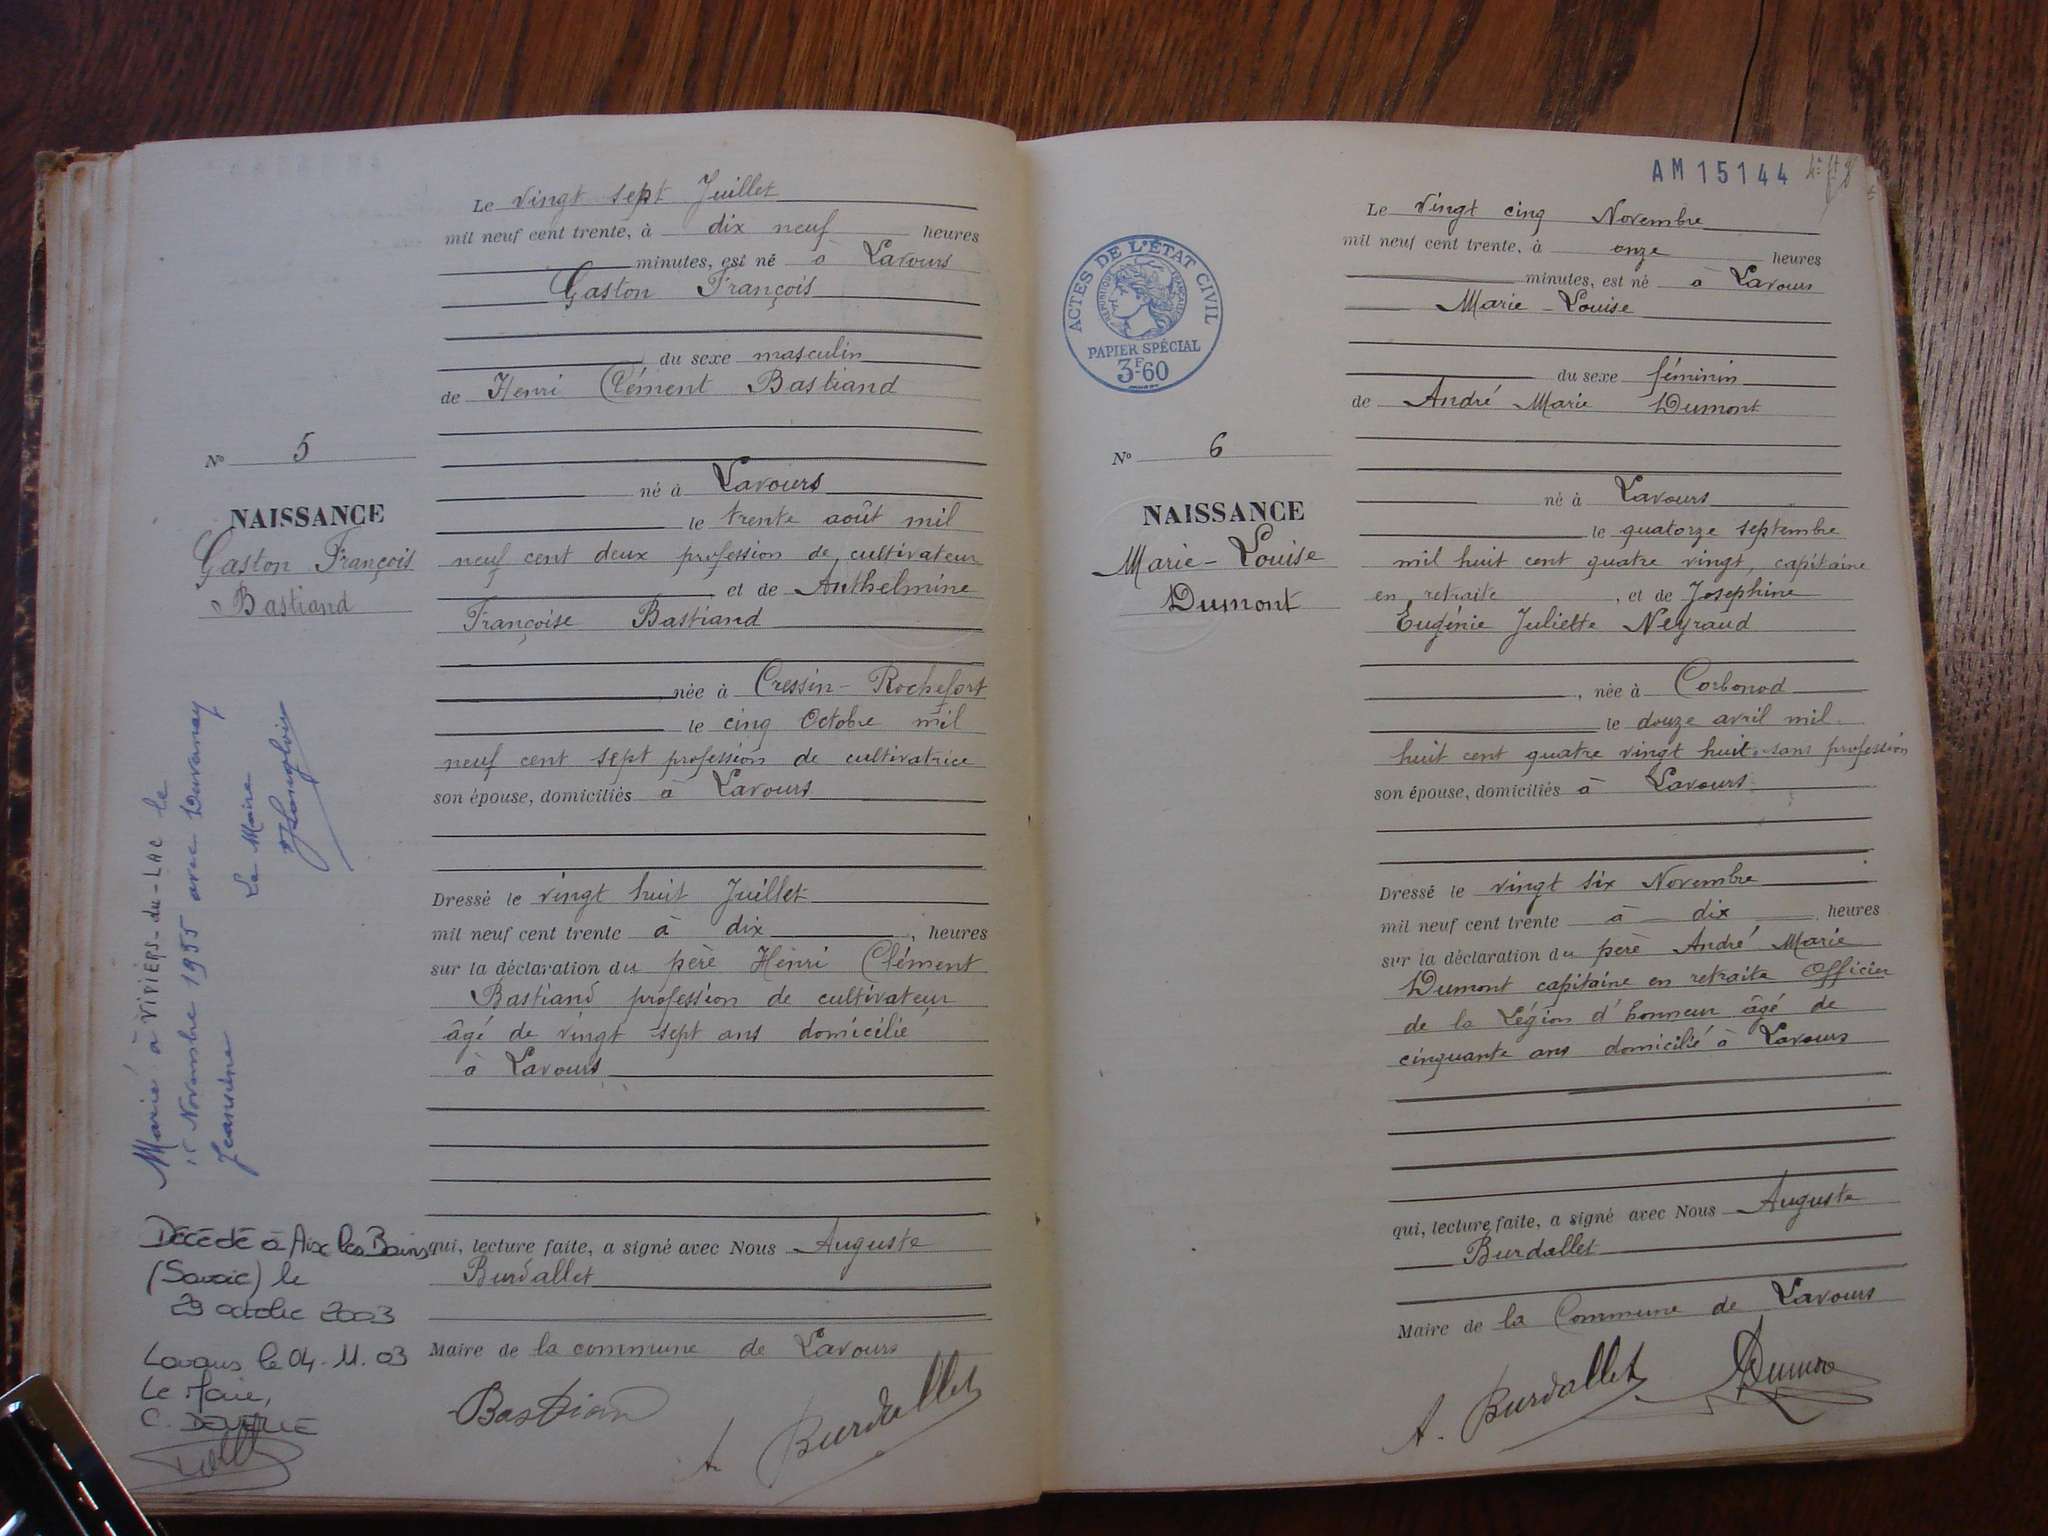 Le vingt sept Juillet
mil neuf cent trente, à dix neuf heures
minutes, est né à Lavours
Gaston François
du sexe masculin
de Henri Clément Bastiand
né à Lavours
le trente août mil
neuf cent deux profession de cultivateur
et de Anthelmine
Françoise Bastiand
née à Cressin-Rochefort
le cinq Octobre mil
neuf cent sept profession de cultivatrice
son épouse, domiciliés à Lavours
Dressé le vingt huit Juillet
mil neuf cent trente à dix, heures
sur la déclaration du père Henri Clément
Bastiand profession de cultivateur
âgé de vingt sept ans domicilié
à Lavours
qui, lecture faite, a signé avec Nous Auguste
Burdallet
Maire de la commune de Lavours
Bastian
A. Burdallet
No 5
NAISSANCE
Gaston François
Bastiand
Marié à VIVIERS-du-LAC le
Novembre 1955 avec Duvernay
Jeannine
Le Maire
Décédé à Aix les Bains
(Savoie) le
29 octobre 2003
Lavours le 04.11.03
Le Maire,
C.
AM 15144
ACTES DE L'ÉTAT CIVIL
RÉPUBLIQUE FRANÇAISE
PAPIER SPÉCIAL
3F60
No 6
NAISSANCE
Marie-Louise
Dumont
Le vingt cinq Novembre
mil neuf cent trente, à onze heures
minutes, est né à Lavours
Marie-Louise
du sexe féminin
de André Marie Dumont
né à Lavours
le quatorze septembre
mil huit cent quatre vingt, capitaine
en retraite, et de Josephine
Eugénie Juliette Neyraud
, née à Corbonod
le douze avril mil
huit cent quatre vingt huit sans profession
son épouse, domiciliés à Lavours
Dressé le vingt six Novembre
mil neuf cent trente à dix, heures
sur la déclaration du père André Marie
Dumont capitaine en retraite Officier
de la Légion d'honneur âgé de
cinquante ans domicilié à Lavours
qui, lecture faite, a signé avec Nous Auguste
Burdallet
Maire de la Commune de Lavours
A. Burdallet